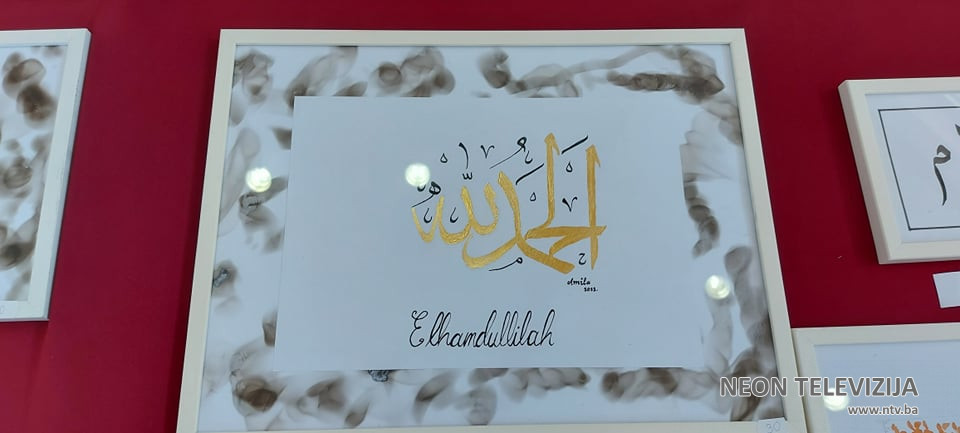 الحمد لله
Amila
2022.
Elhamdullilah
م
30
NEON TELEVIZIJA
www.ntv.ba